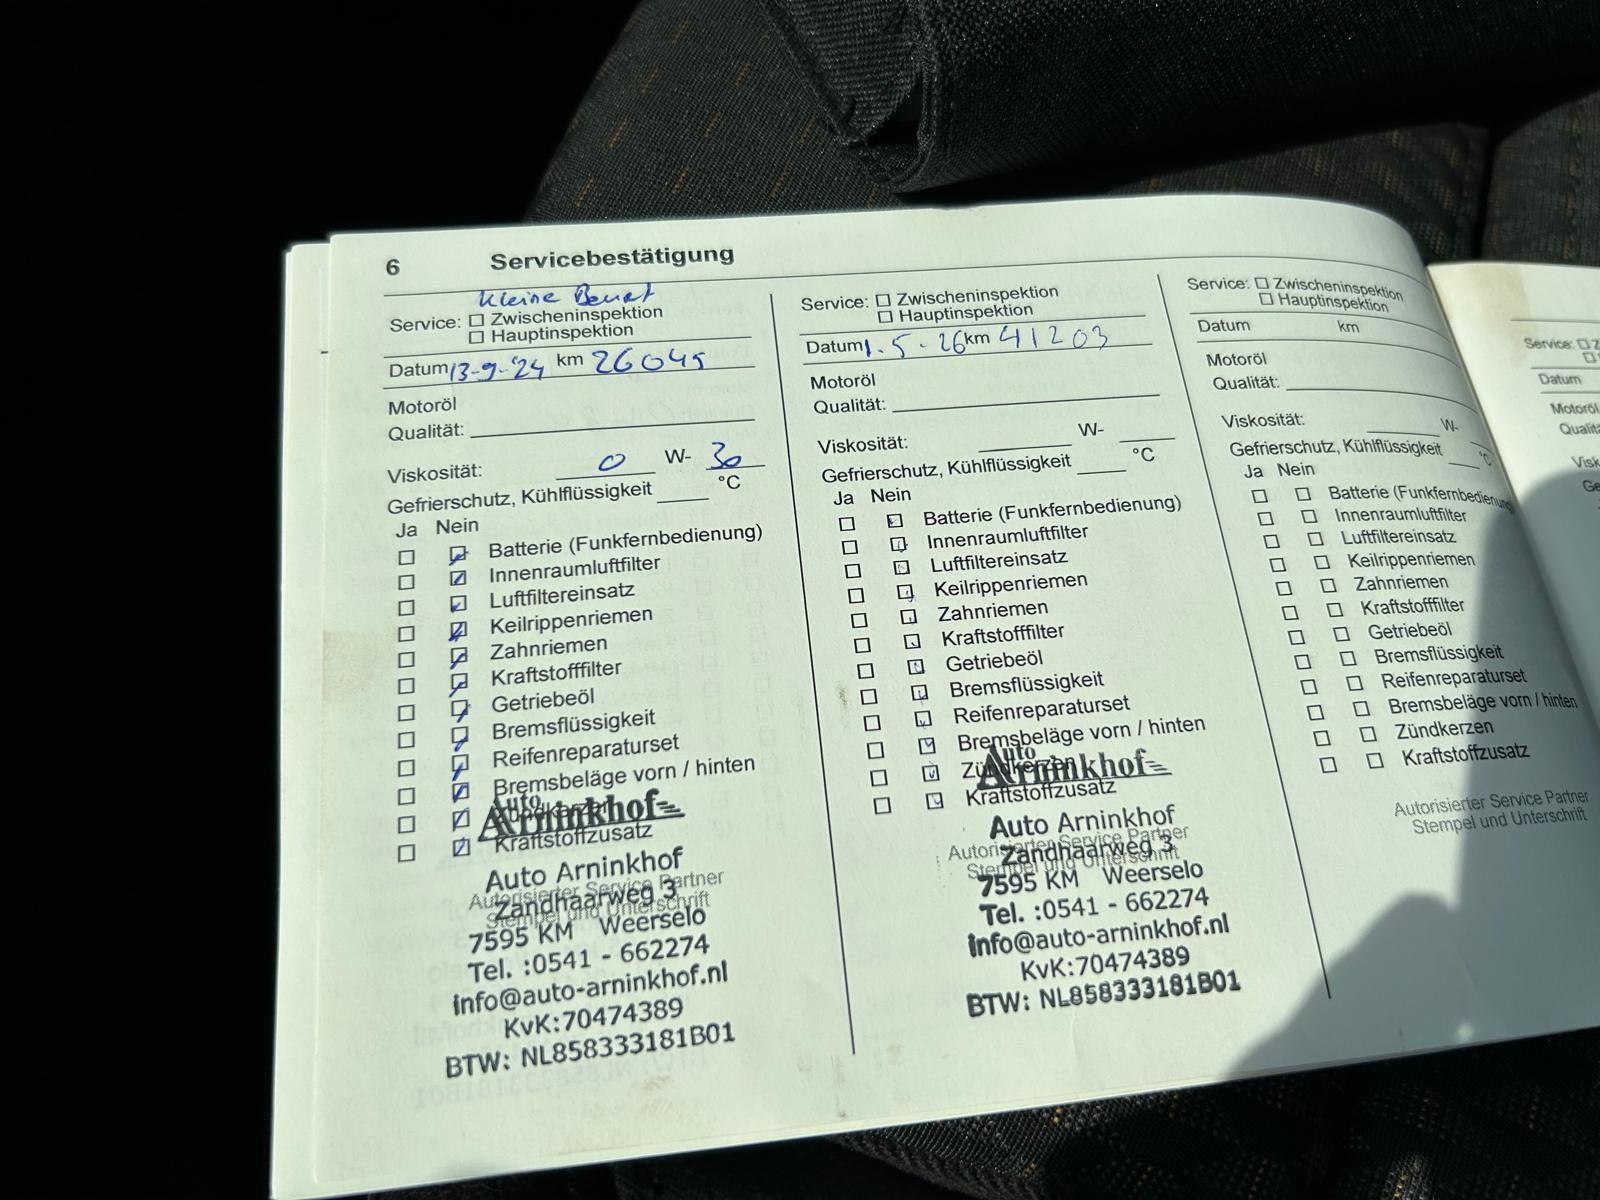 6 Servicebestätigung
Kleine Beurt
Service: Zwischeninspektion
Hauptinspektion
Datum 13-9-'24 km 26045
Motoröl
Qualität:
Viskosität: 0 W- 30
Gefrierschutz, Kühlflüssigkeit °C
Ja Nein
Batterie (Funkfernbedienung)
Innenraumluftfilter
Luftfiltereinsatz
Keilrippenriemen
Zahnriemen
Kraftstofffilter
Getriebeöl
Bremsflüssigkeit
Reifenreparaturset
Bremsbeläge vorn / hinten
Zündkerzen
Kraftstoffzusatz
Auto
Arninkhof
Auto Arninkhof
Autorisierter Service Partner
Zandhaarweg 3
Stempel und Unterschrift
7595 KM Weerselo
Tel. :0541 - 662274
info@auto-arninkhof.nl
KvK:70474389
BTW: NL858333181B01
Service: Zwischeninspektion
Hauptinspektion
Datum 1.5-26 km 41203
Motoröl
Qualität:
Viskosität: W-
Gefrierschutz, Kühlflüssigkeit °C
Ja Nein
Batterie (Funkfernbedienung)
Innenraumluftfilter
Luftfiltereinsatz
Keilrippenriemen
Zahnriemen
Kraftstofffilter
Getriebeöl
Bremsflüssigkeit
Reifenreparaturset
Bremsbeläge vorn / hinten
Zündkerzen
Kraftstoffzusatz
Auto
Arninkhof
Auto Arninkhof
Autorisierter Service Partner
Zandhaarweg 3
Stempel und Unterschrift
7595 KM Weerselo
Tel. :0541 - 662274
info@auto-arninkhof.nl
KvK:70474389
BTW: NL858333181B01
Service: Zwischeninspektion
Hauptinspektion
Datum km
Motoröl
Qualität:
Viskosität: W-
Gefrierschutz, Kühlflüssigkeit °C
Ja Nein
Batterie (Funkfernbedienung
Innenraumluftfilter
Luftfiltereinsatz
Keilrippenriemen
Zahnriemen
Kraftstofffilter
Getriebeöl
Bremsflüssigkeit
Reifenreparaturset
Bremsbeläge vorn / hinten
Zündkerzen
Kraftstoffzusatz
Autorisierter Service Partner
Stempel und Unterschrift
Service: Z
Datum
Motoröl
Qualitä
Visk
Ge